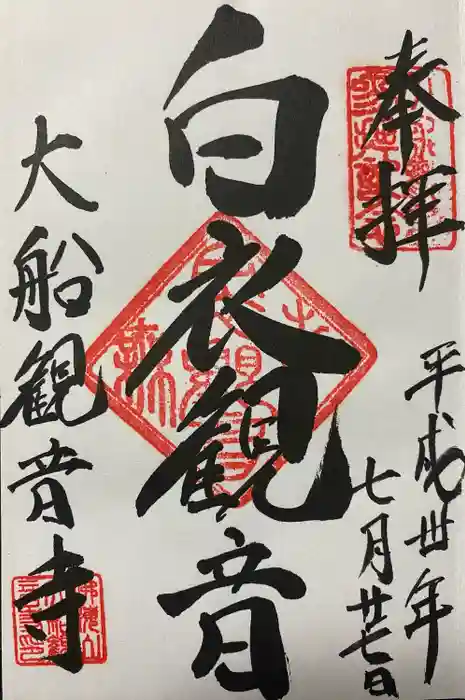 奉拝
平成卅年
七月廿七日
白衣観音
大船観音寺